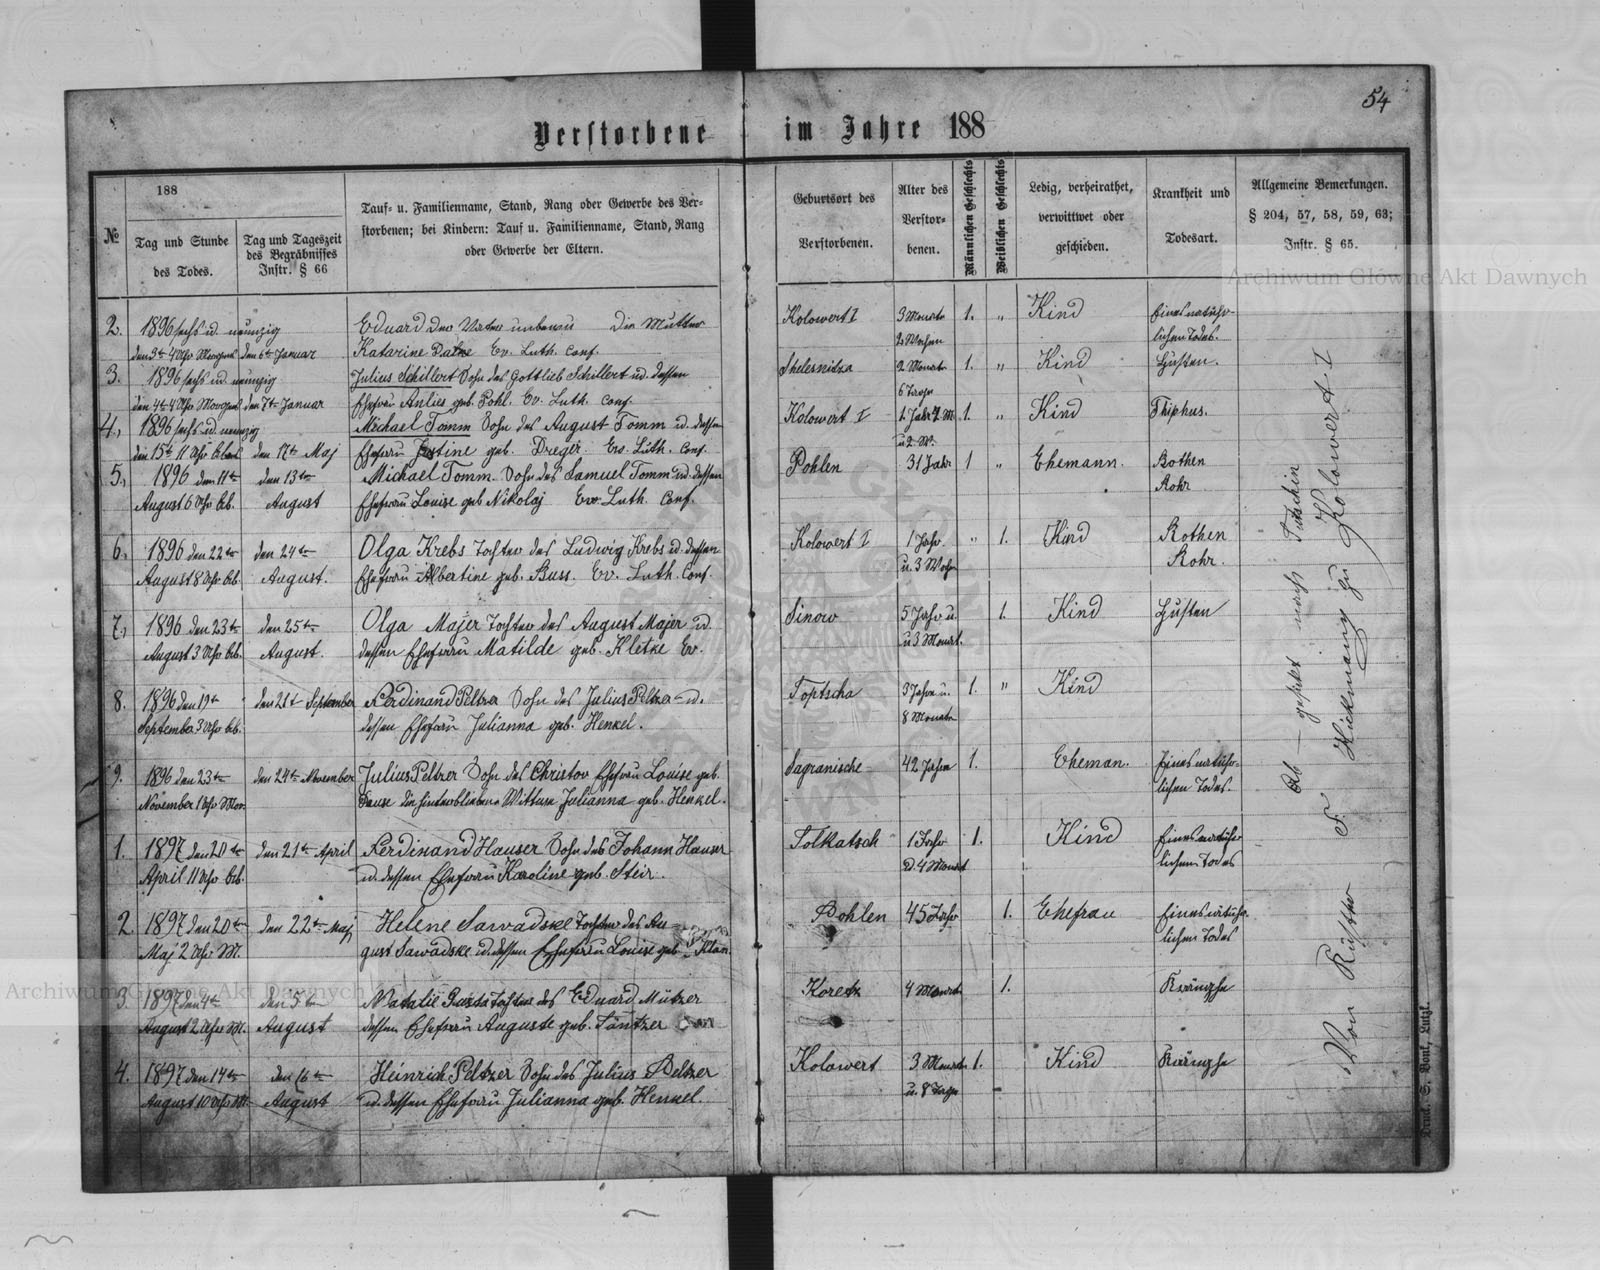 54
Verstorbene im Jahre 188
№
188
Tag und Stunde
des Todes.
Tag und Tageszeit
des Begräbnisses
Instr. § 66
Tauf- u. Familienname, Stand, Rang oder Gewerbe des Ver-
storbenen; bei Kindern: Tauf u. Familienname, Stand, Rang
oder Gewerbe der Eltern.
Geburtsort des
Verstorbenen.
Alter des
Verstor-
benen.
Männlichen Geschlechts
Weiblichen Geschlechts
Ledig, verheirathet,
verwittwet oder
geschieden.
Krankheit und
Todesart.
Allgemeine Bemerkungen.
§ 204, 57, 58, 59, 63;
Instr. § 65.
2. 1896 sechs u. neunzig Eduard der Vater unbenu Die Mutter Kolowert I 3 Monate 1. " Kind Eines natuhr-
den 3ten 4 Uhr Morgens den 6ten Januar Katarine Ev. Luth. Conf. 2 Wochen lichen Todes.
3. 1896 sechs ud neunzig Julius Schillert Sohn des Gottlieb Schillert ud. dessen Shelesnitza 2 Monate 1. " Kind Husten.
den 4ten 4 Uhr Morgens den 7ten Januar Ehefrau Anlies geb. Pohl. Ev. Luth. Conf. 6 Tage
4., 1896 sechs ud. neunzig Michael Tomm Sohn des August Tomm ud. dessen Kolowert I 1 Jahr 7 M. 1. " Kind Thiphus.
den 15ten 11 Uhr Abend den 17ten Maj Ehefrau Justine geb. Dreger Ev. Luth. Conf. u 2 W.
5., 1896 den 11ten den 13ten Michael Tomm Sohn des Samuel Tomm ud. dessen Pohlen 31 Jahr 1 " Ehemann. Rothen
August 6 Uhr Ab. August Ehefrau Louise geb Nikolaj Ev Luth. Conf. Rohr
6., 1896 den 22ten den 24ten Olga Krebs Tochter des Ludwig Krebs ud. dessen Kolowert I 1 Jahr " 1. Kind Rothen
August 8 Uhr Ab. August. Ehefrau Albertine geb. Buss. Ev. Luth. Conf. u. 3 Woch Rohr.
7., 1896 den 23ten den 25ten Olga Majer Tochter des August Majer ud. Sinow 5 Jahr u. 1. Kind Husten
August 3 Uhr Ab. August. dessen Ehefrau Matilde geb. Kletke Ev. u 3 Monat.
8. 1896 den 19ten den 21t September Ferdinand Peltzer Sohn des Julius Peltzer ud. Toptscha 3 Jahre u. 1. " Kind
September 3 Uhr Ab. dessen Ehefrau Julianna geb. Henkel. 8 Monate
9. 1896 den 23ten den 24ten November Julius Peltzer Sohn des Christov Ehefrau Louise geb. Sagranische 42 Jahre 1. Eheman. Eines natuhr-
November 1 Uhr Mor. die hinterbliebene Wittwe Julianna geb. Henkel. lichen Todes.
1. 1897 den 20ten den 21ten April Ferdinand Hauser Sohn des Johann Hauser Solkatsch 1 Jahr 1. Kind Eines natuhr
April 11 Uhr Ab. ud. dessen Ehefrau Karoline geb. Steir. ud 4 Monat lichen Todes
2. 1897 den 20ten den 22ten Maj Helene Sawadske Tochter des Au- Pohlen 45 Jahr 1. Ehefrau Eines natuhr.
Maj 2 Uhr M. gust Sawadske ud. dessen Ehefrau Louise geb. lichen Todes
3. 1897 den 4ten den 5ten Natalie Tochter des Eduard Mützer Koretz 4 Monat 1. Krämpfe
August 2 Uhr M. August dessen Ehefrau Auguste geb. Täntzer
4. 1897 den 14ten den 16ten Heinrich Peltzer Sohn des Julius Peltzer Kolowert 3 Monate 1. Kind Krämpfe
August 10 Uhr M. August ud. dessen Ehefrau Julianna geb. Henkel. u. 8 Tage
Ab – gesetzt nach Tutschin
Von Küster F. Hickmann zu Kolowert. I
Druck. S. Bonk, Lutzk.
Archiwum Główne Akt Dawnych
Archiwum Główne Akt Dawnych